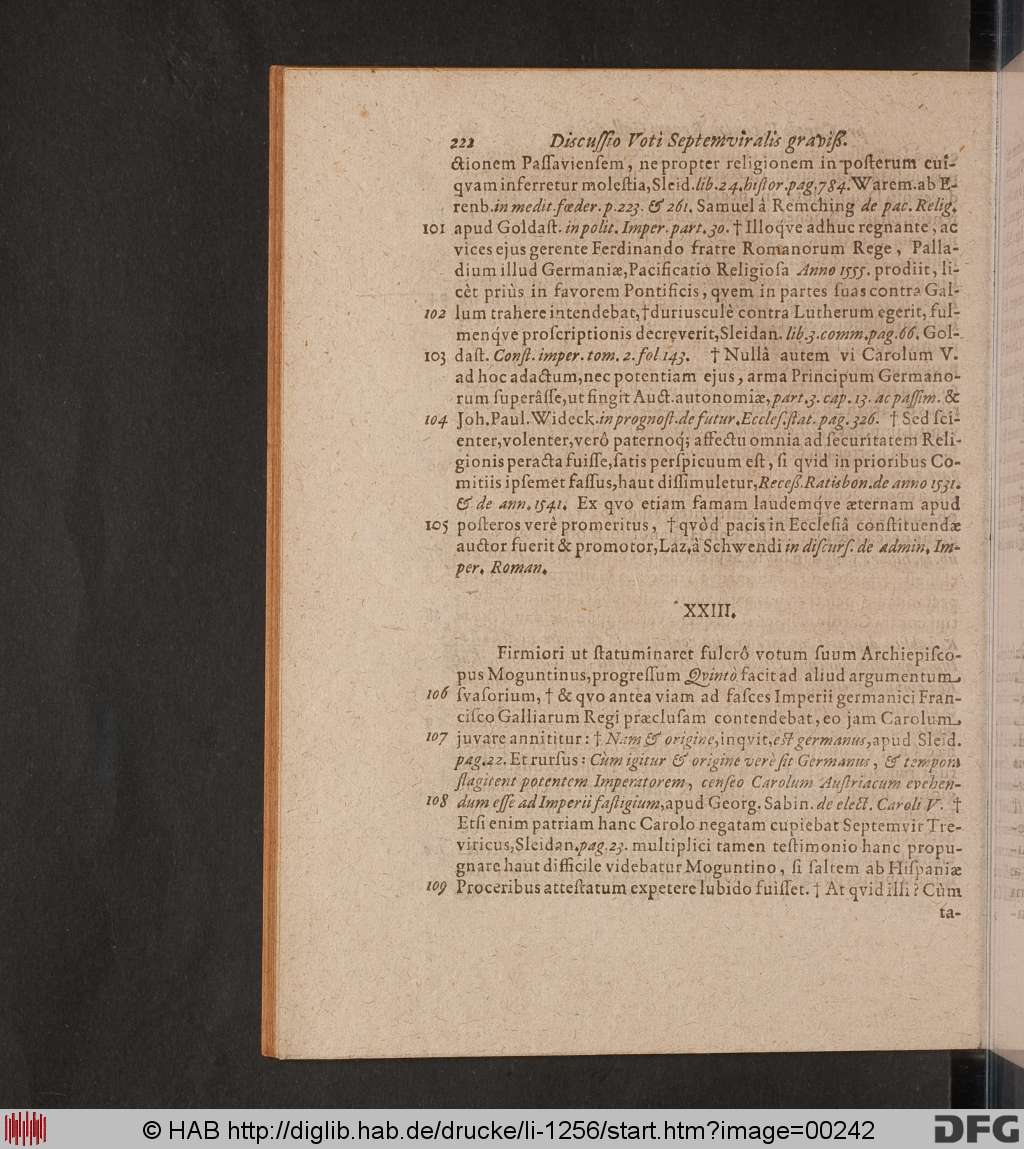 222 Discuſſio Voti Septemviralis graviß.
ctionem Paſſavienſem, ne propter religionem in poſterum cuî-
qvam inferretur moleſtia, Sleid. lib. 24. hiſtor. pag. 784. Warem. ab E-
renb. in medit. fœder. p. 223. & 261. Samuel â Remching de pac. Relig.
101 apud Goldaſt. in polit. Imper. part. 30. † Illoqve adhuc regnante, ac
vices ejus gerente Ferdinando fratre Romanorum Rege, Palla-
dium illud Germaniæ, Pacificatio Religioſa Anno 1555. prodiit, li-
cèt priùs in favorem Pontificis, qvem in partes ſuas contra Gal-
102 lum trahere intendebat, † duriusculè contra Lutherum egerit, ful-
menqve proſcriptionis decreverit, Sleidan. lib. 3. comm. pag. 66. Gol-
103 daſt. Conſt. imper. tom. 2. fol 143. † Nullâ autem vi Carolum V.
ad hoc adactum, nec potentiam ejus, arma Principum Germano-
rum ſuperâſſe, ut fingit Auct. autonomiæ, part. 3. cap. 13. ac paſſim. &
104 Joh. Paul. Wideck. in prognoſt. de futur. Eccleſ. ſtat. pag. 326. † Sed ſci-
enter, volenter, verô paternoq; affectu omnia ad ſecuritatem Reli-
gionis peracta fuiſſe, ſatis perſpicuum eſt, ſi qvid in prioribus Co-
mitiis ipſemet faſſus, haut diſſimuletur, Receß. Ratisbon. de anno 1531.
& de ann. 1541. Ex qvo etiam famam laudemq́ve æternam apud
105 poſteros verè promeritus, † qvòd pacis in Eccleſiâ conſtituendæ
auctor fuerit & promotor, Laz. à Schwendi in diſcurſ. de admin. Im-
per. Roman.
XXIII.
Firmiori ut ſtatuminaret fulcrô votum ſuum Archiepiſco-
pus Moguntinus, progreſſum Qvintò facit ad aliud argumentum
106 ſvaſorium, † & qvo antea viam ad faſces Imperii germanici Fran-
ciſco Galliarum Regi præcluſam contendebat, eo jam Carolum
107 juvare annititur: † Nam & origine, inqvit, eſt germanus, apud Sleid.
pag. 22. Et rurſus: Cùm igitur & origine verè ſit Germanus, & tempora
flagitent potentem Imperatorem, cenſeo Carolum Auſtriacum evehen-
108 dum eſſe ad Imperii faſtigium, apud Georg. Sabin. de elect. Caroli V. †
Etſi enim patriam hanc Carolo negatam cupiebat Septemvir Tre-
viricus, Sleidan. pag. 23. multiplici tamen teſtimonio hanc propu-
gnare haut difficile videbatur Moguntino, ſi ſaltem ab Hiſpaniæ
109 Proceribus atteſtatum expetere lubido fuiſſet. † At qvid illi? Cùm
ta-
© HAB http://diglib.hab.de/drucke/li-1256/start.htm?image=00242
DFG